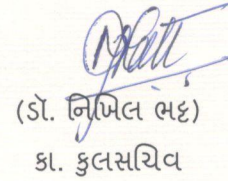 (ડૉ. નિખિલ ભટ્ટ)
કા. કુલસચિવ